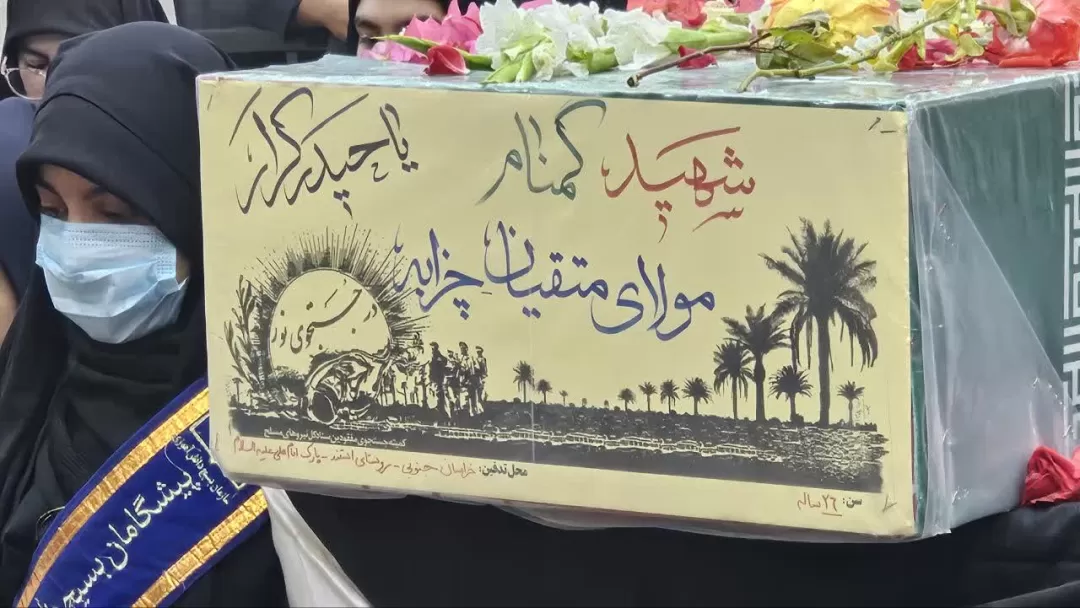 یا حیدر کرار
شهید گمنام
مولای متقیان چزابه
در جستجوی نور
کمیته جستجوی مفقودین ستاد کل نیروهای مسلح
محل تدفین: خراسان جنوبی - روستای اسفند - پارک امام علی علیه السلام
سن: ۲۶ ساله
سازمان بسیج دانش آموزی
پیشگامان بسیج